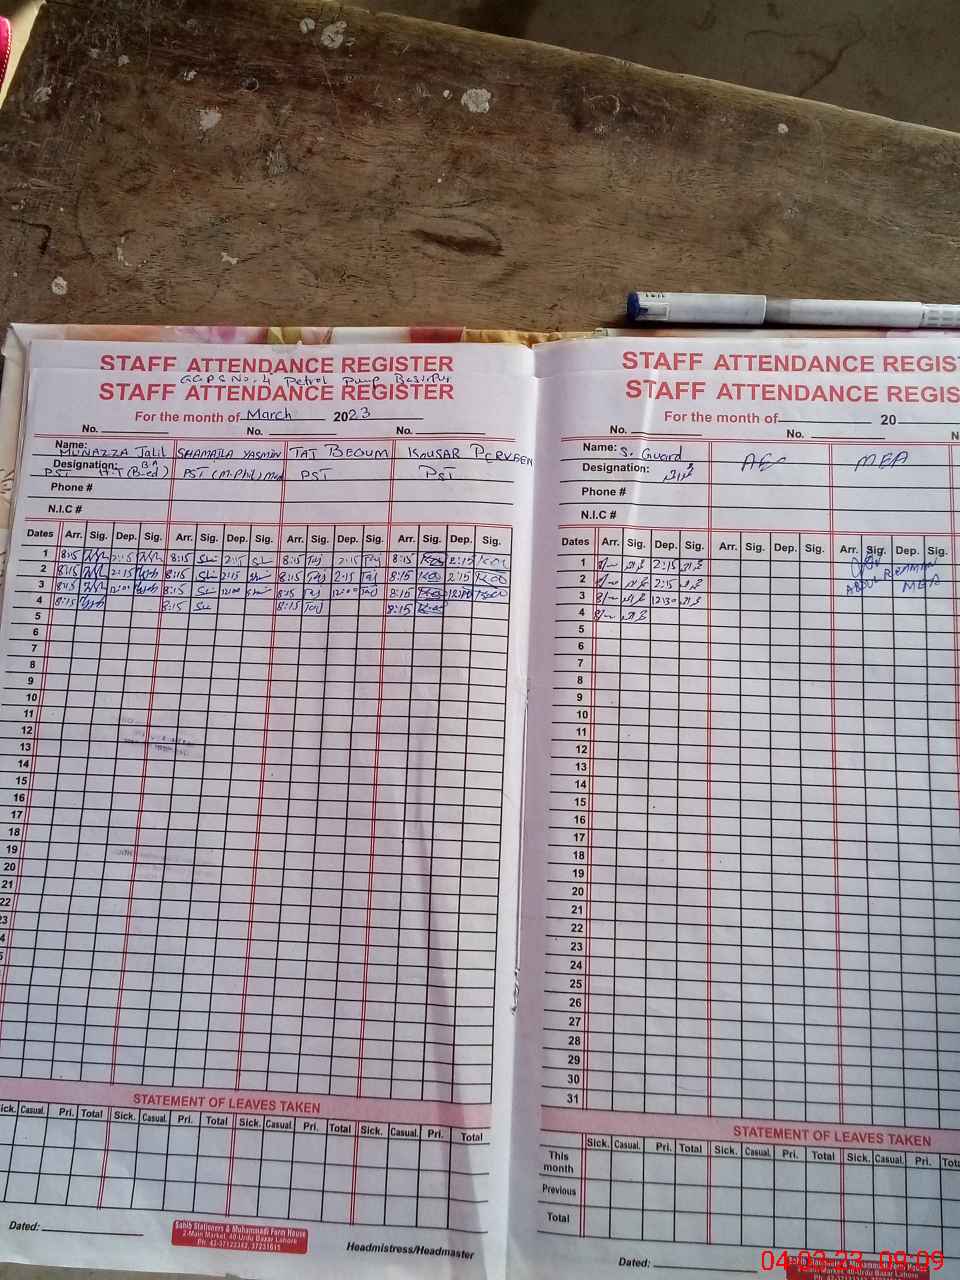 STAFF ATTENDANCE REGISTER
GGPS No. 4 Petrol Pump Basirpur
STAFF ATTENDANCE REGISTER
For the month of March 2023
No. No. No. No.
Name: MUNAZZA Jalil SHAMAILA YASMIN TAJ BEGUM KAUSAR PERVEEN
Designation: PST H-T (B-ed) BA PST (M-Phil) PST PST
Phone #
N.I.C #
Dates Arr. Sig. Dep. Sig. Arr. Sig. Dep. Sig. Arr. Sig. Dep. Sig. Arr. Sig. Dep. Sig.
1 8:15 2:15 8:15 2:15 8:15 Taj 2:15 Taj 8:15 2:15
2 8:15 2:15 8:15 2:15 8:15 Taj 2:15 Taj 8:15 2:15
3 8:15 12:00 8:15 12:00 8:15 Taj 12:00 Taj 8:15 12:00
4 8:15 8:15 8:15 Taj 8:15
5
6
7
8
9
10
11
12
13
14
15
16
17
18
19
20
21
22
23
STATEMENT OF LEAVES TAKEN
Sick. Casual. Pri. Total Sick. Casual. Pri. Total Sick. Casual. Pri. Total Sick. Casual. Pri. Total
Dated:
Sahib Stationers & Muhammadi Farm House
2-Main Market, 40-Urdu Bazar Lahore
Ph: 42-37122342, 37231615
Headmistress/Headmaster
STAFF ATTENDANCE REGIST
STAFF ATTENDANCE REGIS
For the month of 20
No. No.
Name: S. Guard AE MEA
Designation:
Phone #
N.I.C #
Dates Arr. Sig. Dep. Sig. Arr. Sig. Dep. Sig. Arr. Sig. Dep. Sig.
1 8/- 2:15
2 8/- 2:15 ABDUL Rehman
3 8/- 12:30 MEA
4 8/-
5
6
7
8
9
10
11
12
13
14
15
16
17
18
19
20
21
22
23
24
25
26
27
28
29
30
31
STATEMENT OF LEAVES TAKEN
Sick. Casual. Pri. Total Sick. Casual. Pri. Total Sick. Casual. Pri. Tota
This month
Previous
Total
Dated:
Market, 40-Urdu Bazar Lahore
04-03-23 09:09